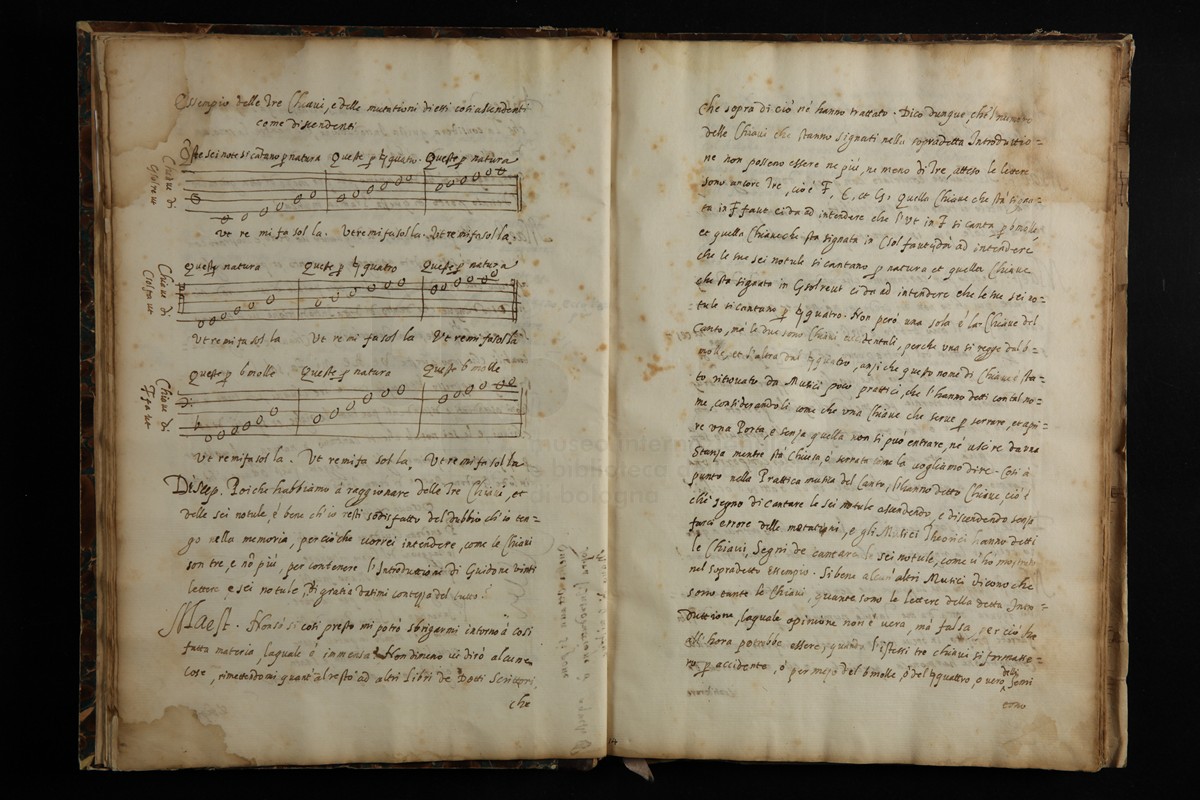 Essempio delle Tre Chiaui, e delle mutationi di essi così ascendenti
come discendenti
Chiaue di
Gsolreut
Queste sei note si cătano p natura Queste p ♮quatro. Queste p natura
vt re mi fa sol la. Vt re mi fa sol la. Vt re mi fa sol la.
Chiaue di
Csolfaut
Queste p natura Queste p ♮ quatro Queste p natura
Vt re mi fa sol la Vt re mi fa sol la Vt re mi fa sol la
Chiaue di
F fa ut
Queste p b molle Queste p natura Queste b molle
Vt re mi fa sol la. Vt re mi fa sol la, Vt re mi fa sol la
Discep. Poiche habbiamo à raggionare delle Tre Chiaui, et
delle sei notule, è bene ch'io resti sodisfatto del dubbio ch'io ten=
go nella memoria, perciòche vorrei intendere, come le Chiaui
son tre, e nō più, per contenere l'Introduttione di Guidone vinti
lettere e sei notule, di gratia datimi contezza del tutto.
Maest. Non sò si così presto mi potrò sbrigarmi intorno à così
fatta materia, laquale è immensa. Nondimeno vi dirò alcune
cose, rimettendomi quant'al resto ad altri libri de Dotti Scrittori,
che
che sopra di ciò nè hanno trattato. Dico dunque, che'l numero
delle Chiaui che stanno signati nella sopradetta Introduttio=
ne non posseno essere ne più, ne meno di Tre, atteso le lettere
sono ancore Tre, cio è F, C, et G, Quella Chiaue che stà signa=
ta in F faut ci da ad intendere che l'Vt in F si canta p b molle
et quella Chiaue che sta signata in C sol faut dà ad intendere
che le sue sei notule si cantano p natura, et quella Chiaue
che stà signata in Gsolreut ci dà ad intendere che le sue sei no=
tule si cantano p ♮quatro. Non però una sola è la Chiaue del
Canto, mà le due sono Chiaui accidentali, perche vna si regge dal b=
molle, et l'altra dal ♮quatro, ansi che questo nome di Chiaue è sta=
to ritrouato da Musici poco prattici, che l'hanno detti con tal no=
me, considerandoli come che vna Chiaue che serue p serrare, et apri=
re vna Porta, e senza quella non si può entrare, nè uscire da vna
Stanza mentre stà Chiusa, ò serrata come la vogliamo dire. Così à
punto nella Prattica musica del Canto, l'hanno detto Chiaue, ciò è
che segno di Cantare le sei notule ascendendo, e discendendo senza
farci errore delle mutationi, e gli Musici Theorici hanno detti
le Chiaui, Segni de cantare le sei notule, come vi hò mostrato
nel sopradetto Essempio. Si bene alcun'altri Musici dicono che
sono tante le Chiaui, quante sono le lettere della detta Intro=
duttione, laquale opinione non è vera, mà falsa, per ciò che
all'hora potrebbe essere, quando l'istessi tre chiaui si formasse=
ro p accidente, ò per mezo del b molle, ò del ♮quattro, o uero delli semi
tono